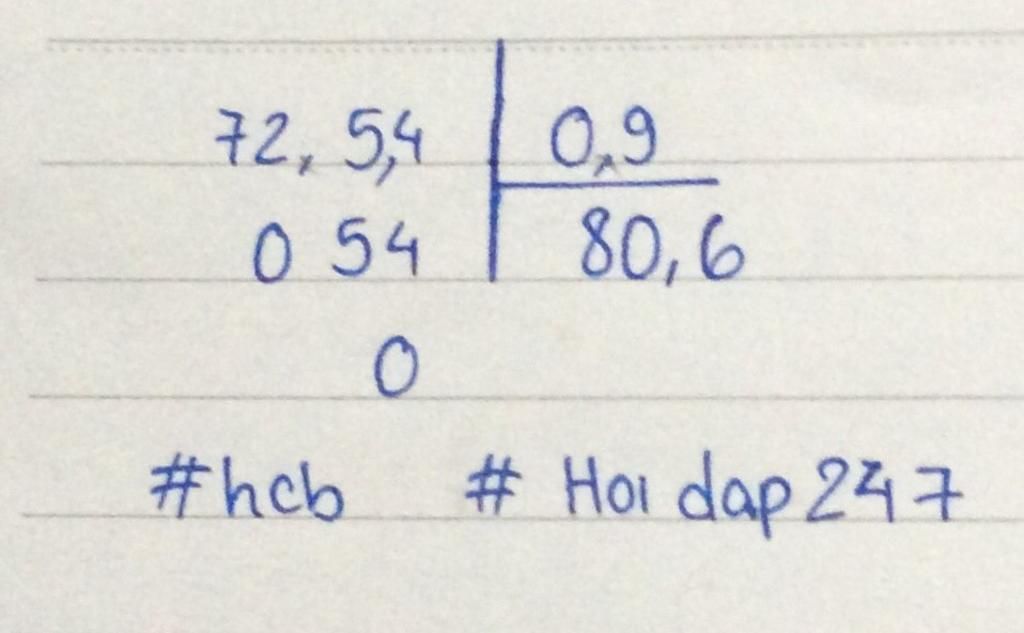 72,5,4 0,9
0 54 80,6
0
#hcb # Hoi dap 247